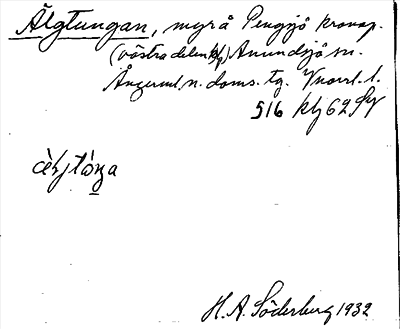 Älgtungan, myr å Pengsjö kronop.
(västra delen) Anundsjö sn.
Ångerml. n. doms. tg. Vnorrl. l.
516 63 62
tɷŋa
H. A. Söderberg 1932